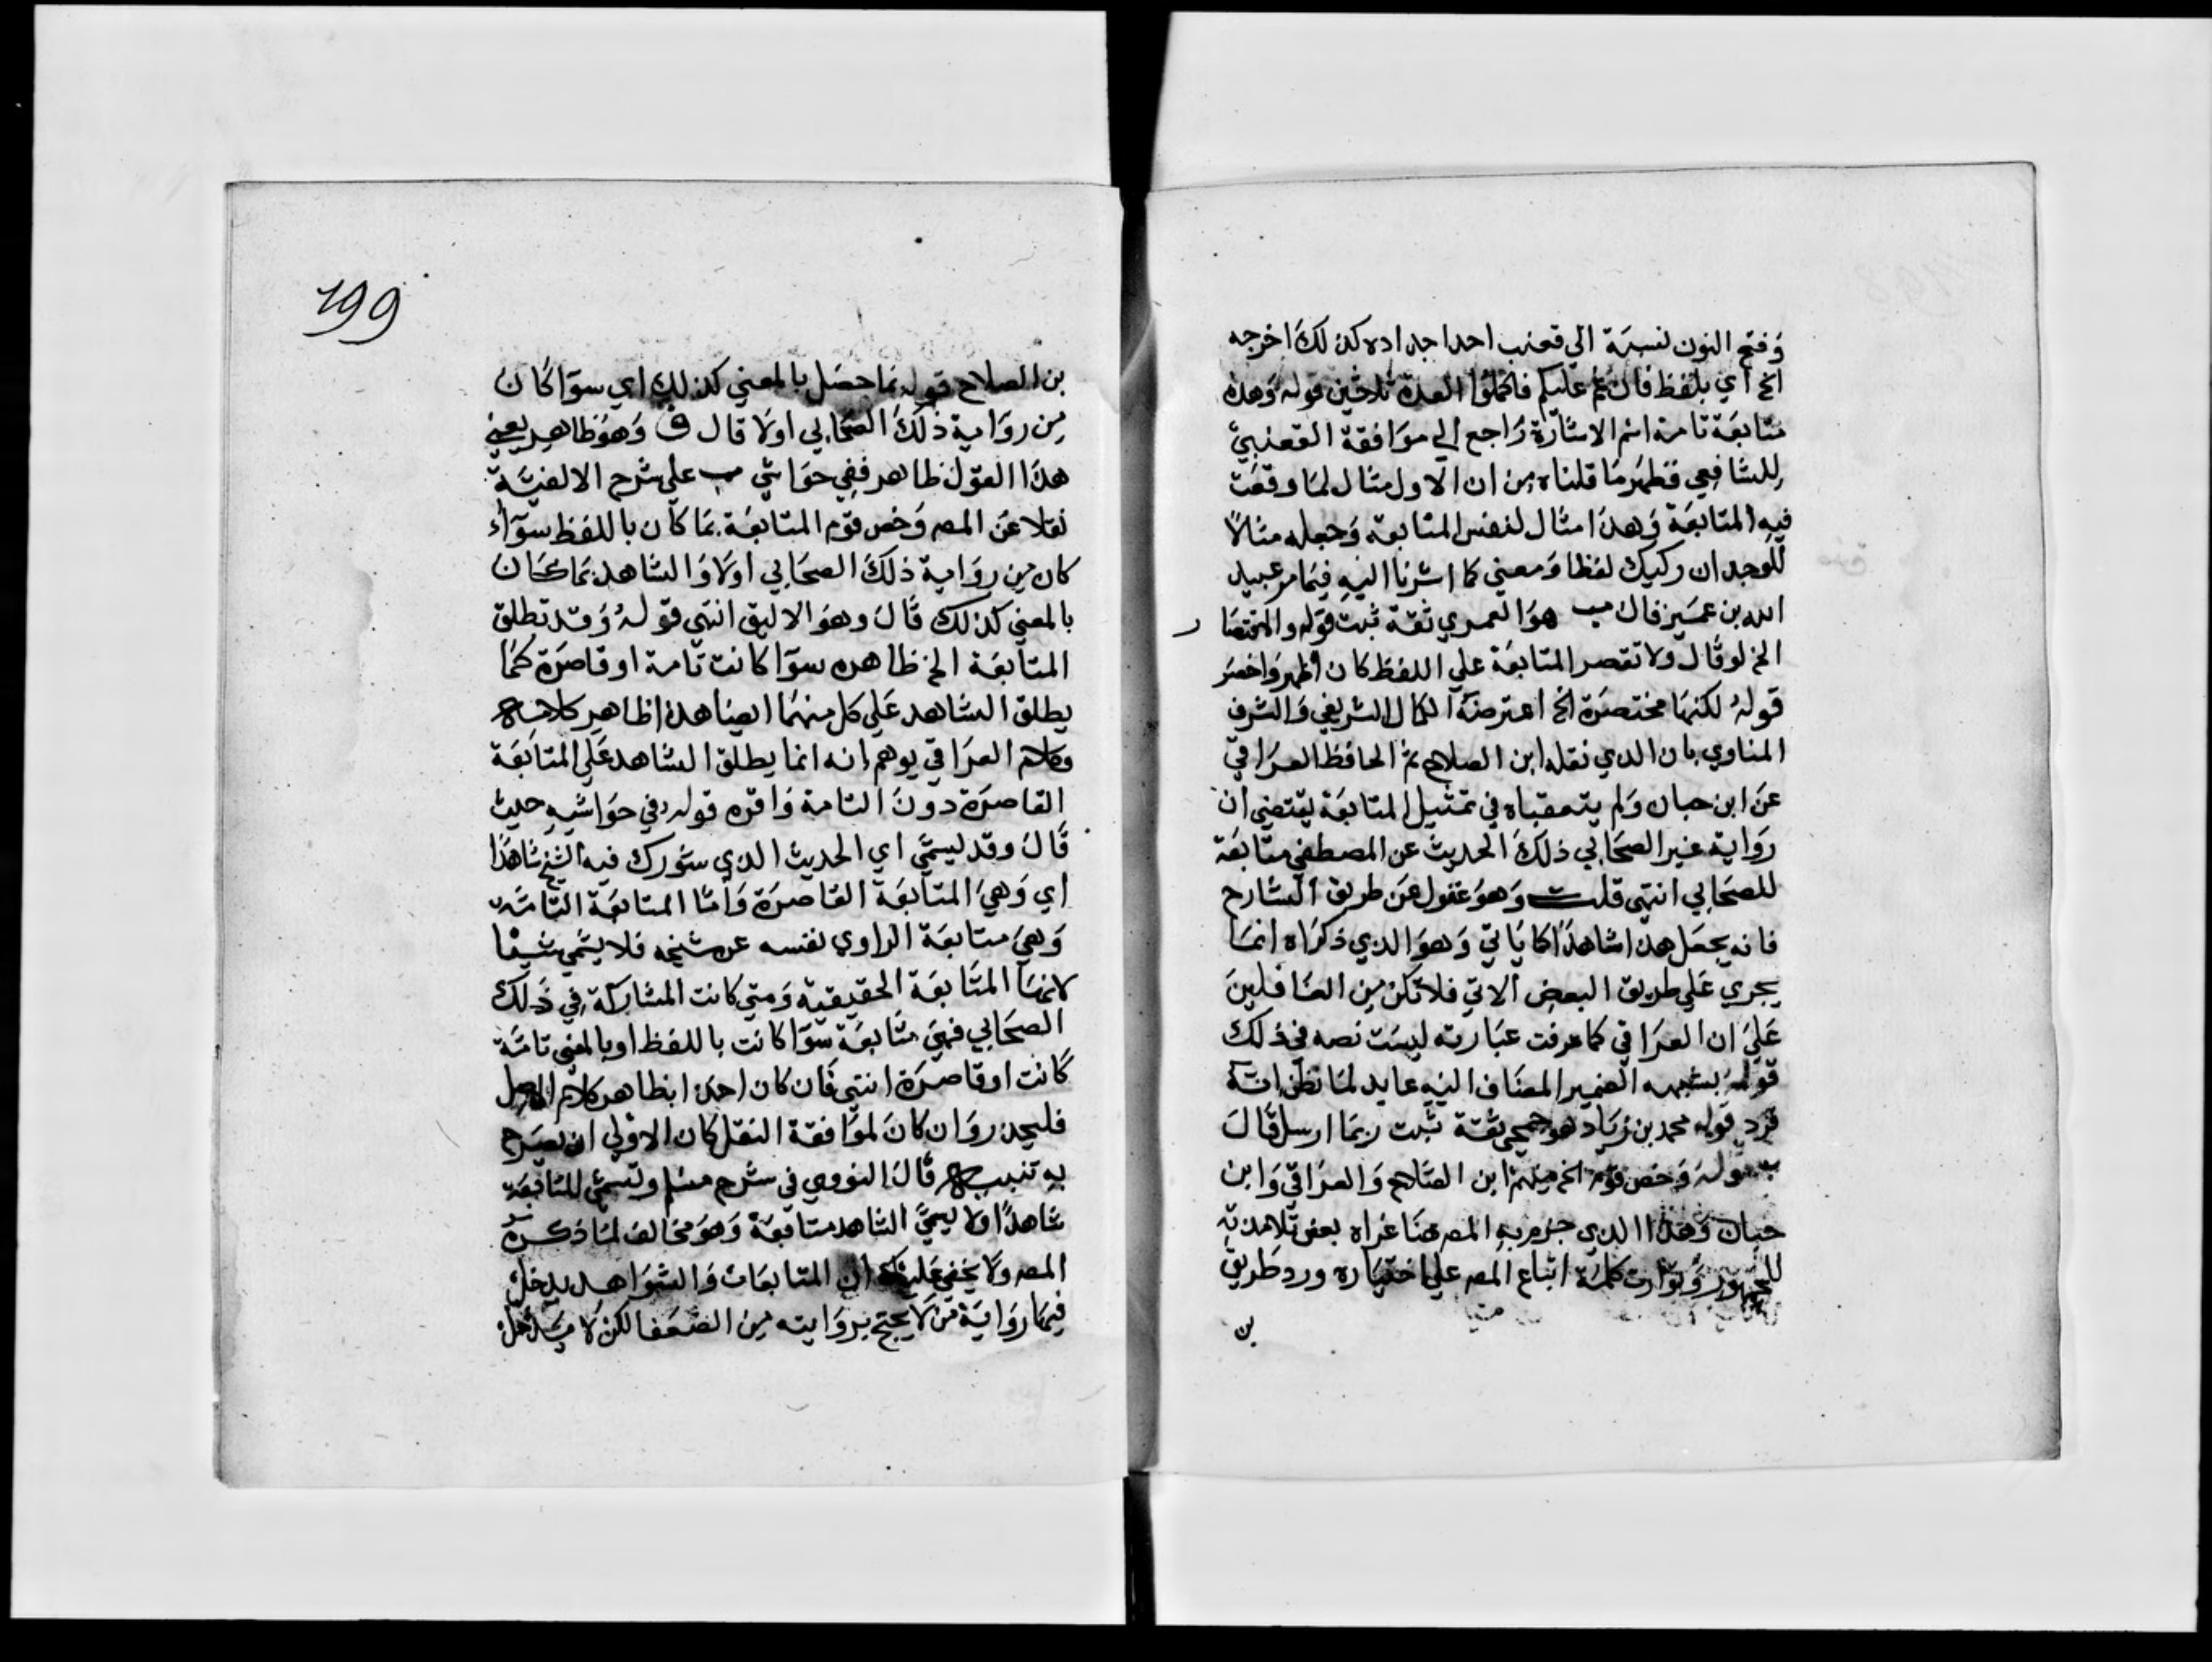 وفتح النون نسبة الي قعنب احد اجداده كذلك اخرجه
الخ اي بلفظ فان غم عليكم فاكملوا العدة ثلاثين قوله وهذه
متابعة تامة اسم الاشارة راجع الي موافقة القعنبي
للشافعي فظهر ما قلناه من ان الاول مثال لما وقعت
فيه المتابعة وهذا مثال لنفس المتابعة وجعله مثالا
للوجدان ركيك لفظا ومعني كما اشرنا اليه فيما مر عبيد
الله بن عمير قال هو العمري ثقة ثبت قوله والمختصا
ر
الخ لو قال ولا تقصر المتابعة علي اللفظ كان اظهر واخصر
قوله لكنها مختصرة الخ اعترضه الكمال الشريفي والشرف
المناوي بان الذي نقله ابن الصلاح ثم الحافظ العراقي
عن ابن حبان ولم يتعقباه في تمثيل المتابعة يقتضي ان
رواية غير الصحابي ذلك الحديث عن المصطفي متابعة
للصحابي انتهي قلت وهو غفول عن طريق الشارح
فانه يجعل هذا شاهدا كما ياتي وهو الذي ذكراه انما
يجري علي طريق البعض الاتي فلا تكن من الغافلين
علي ان العراقي كما عرفت عبارته ليست نصه في ذلك
قوله بشبهه الضمير المضاف اليه عايد لما نظن انه
فرد قوله محمد بن زياد هو جمحي ثقة ثبت ربما ارسل قال
قوله وخص قوم الخ منهم ابن الصلاح والعراقي وابن
حبان وهذا الذي جزم به المصه هنا عزاه بعض تلامذته
للجمهور وتوارت كلمة اتباع المصه علي اختياره ورد طريق
بن
199
بن الصلاح قوله بما حصل بالمعني كذلك اي سوا كان
من رواية ذلك الصحابي اولا قال ق وهو ظاهر يعني
هذا القول ظاهر ففي حواشي علي شرح الالفية
نقلا عن المصه وخص قوم المتابعة بما كان باللفظ سواء
كان من رواية ذلك الصحابي اولا والشاهد بما كان
بالمعني كذلك قال وهو الاليق انتهي قوله وقد تطلق
المتابعة الخ ظاهره سوا كانت تامة او قاصرة كما
يطلق الشاهد علي كل منهما ايضا هذا ظاهر كلامه
وكلام العراقي يوهم انه انما يطلق الشاهد علي المتابعة
القاصرة دون التامة واقره قوله في حواشيه حيث
قال وقد يسمي اي الحديث الذي شورك فيه الشيخ شاهدا
اي وهي المتابعة القاصرة واما المتابعة التامة
وهي متابعة الراوي نفسه عن شيخه فلا يسمي شيا
لانها المتابعة الحقيقية ومتي كانت المشاركة في ذلك
الصحابي فهي متابعة سوا كانت باللفظ او بالمعني تامة
كانت او قاصرة انتهي فان كان اخذا بظاهر كلام الاصل
فليحذر وان كان لموافقة النقل كان الاولي ان يصرح
به تنبيه قال النووي في شرح مسلم وتسمي المتابعة
شاهدا ولا يسمي الشاهد متابعة وهو مخالف لما ذكره
المصه ولا يخفي عليك ان المتابعات والشواهد يدخل
فيها رواية من لا يحتج بروايته من الضعفا لكن لا يدخل